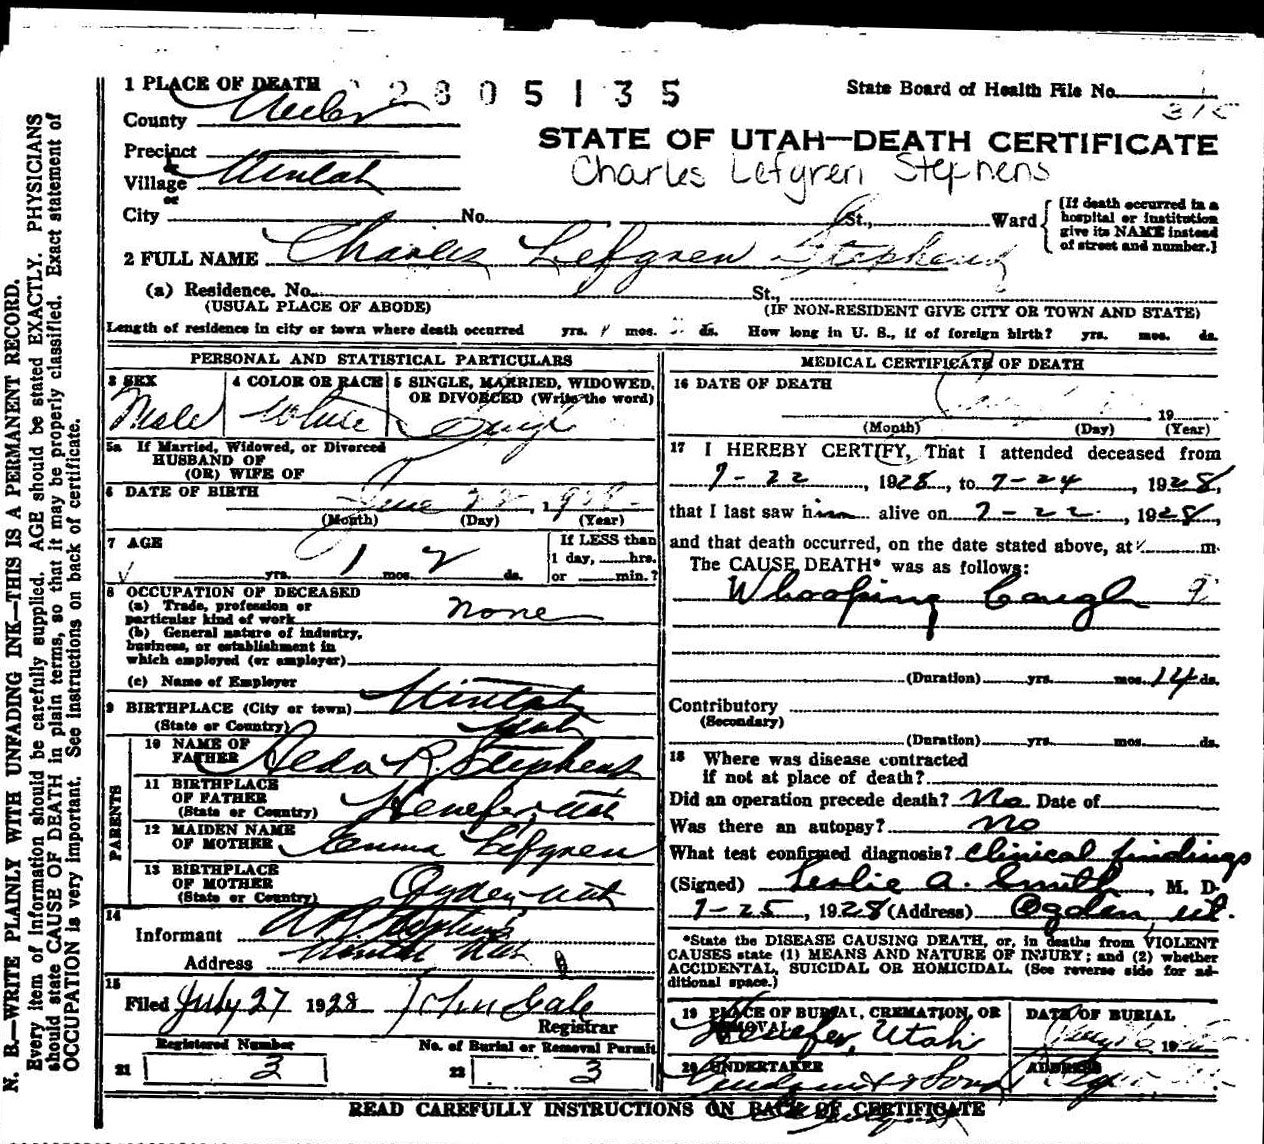 1 PLACE OF DEATH 2805135 State Board of Health File No.
315
County Weber
STATE OF UTAH—DEATH CERTIFICATE
Precinct
or
Village Uintah
Charles Lefgren Stephens
or
City No. St., Ward
[If death occurred in a hospital or institution give its NAME instead of street and number.]
2 FULL NAME Charles Lefgren Stephens
(a) Residence. No. St.,
(USUAL PLACE OF ABODE) (IF NON-RESIDENT GIVE CITY OR TOWN AND STATE)
Length of residence in city or town where death occurred yrs. 1 mos. ds. How long in U. S., if of foreign birth? yrs. mos. ds.
PERSONAL AND STATISTICAL PARTICULARS
3 SEX 4 COLOR OR RACE 5 SINGLE, MARRIED, WIDOWED, OR DIVORCED (Write the word)
Male White Single
5a If Married, Widowed, or Divorced
HUSBAND OF
(OR) WIFE OF
6 DATE OF BIRTH June 22, 1928
(Month) (Day) (Year)
7 AGE 1 2
yrs. mos. ds.
If LESS than
1 day, hrs.
or min.?
8 OCCUPATION OF DECEASED
(a) Trade, profession or
particular kind of work none
(b) General nature of industry,
business, or establishment in
which employed (or employer)
(c) Name of Employer
9 BIRTHPLACE (City or town) Uintah
(State or Country) Utah
PARENTS
10 NAME OF
FATHER R. Stephens
11 BIRTHPLACE
OF FATHER
(State or Country) Henefer, Utah
12 MAIDEN NAME
OF MOTHER Emma Lefgren
13 BIRTHPLACE
OF MOTHER
(State or Country) Ogden Utah
14
Informant A R Stephens
Address Uintah Utah
15
Filed July 27 1928 John Gale
Registrar
Registered Number No. of Burial or Removal Permit
21 3 22 3
MEDICAL CERTIFICATE OF DEATH
16 DATE OF DEATH
19
(Month) (Day) (Year)
17 I HEREBY CERTIFY, That I attended deceased from
7-22, 1928, to 7-24, 1928,
that I last saw him alive on 7-22, 1928,
and that death occurred, on the date stated above, at m.
The CAUSE DEATH* was as follows:
Whooping Cough 9
(Duration) yrs. mos. 14 ds.
Contributory
(Secondary)
(Duration) yrs. mos. ds.
18 Where was disease contracted
if not at place of death?
Did an operation precede death? No Date of
Was there an autopsy? no
What test confirmed diagnosis? Clinical findings
(Signed) Leslie A. Smith, M. D.
7-25, 1928 (Address) Ogden Ut.
*State the DISEASE CAUSING DEATH, or, in deaths from VIOLENT
CAUSES state (1) MEANS AND NATURE OF INJURY; and (2) whether
ACCIDENTAL, SUICIDAL OR HOMICIDAL. (See reverse side for additional space.)
19 PLACE OF BURIAL, CREMATION, OR REMOVAL DATE OF BURIAL
Henefer, Utah 19
20 UNDERTAKER ADDRESS
& Sons
READ CAREFULLY INSTRUCTIONS ON BACK OF CERTIFICATE
N. B.—WRITE PLAINLY WITH UNFADING INK—THIS IS A PERMANENT RECORD.
Every item of information should be carefully supplied. AGE should be stated EXACTLY. PHYSICIANS
should state CAUSE OF DEATH in plain terms, so that it may be properly classified. Exact statement of
OCCUPATION is very important. See instructions on back of certificate.